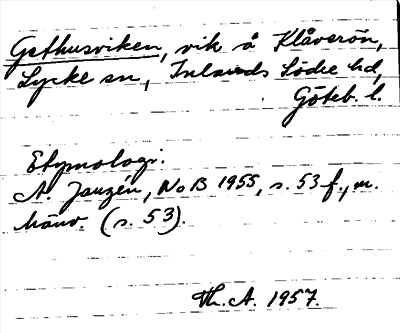 Gethusviken, vik å Klåverön,
Lycke sn, Inlands Södre hd,
Göteb. l.
Etymologi.
A. Janzén, NoB 1955, s. 53 f., m.
hänv. (s. 53).
Th. A. 1957.